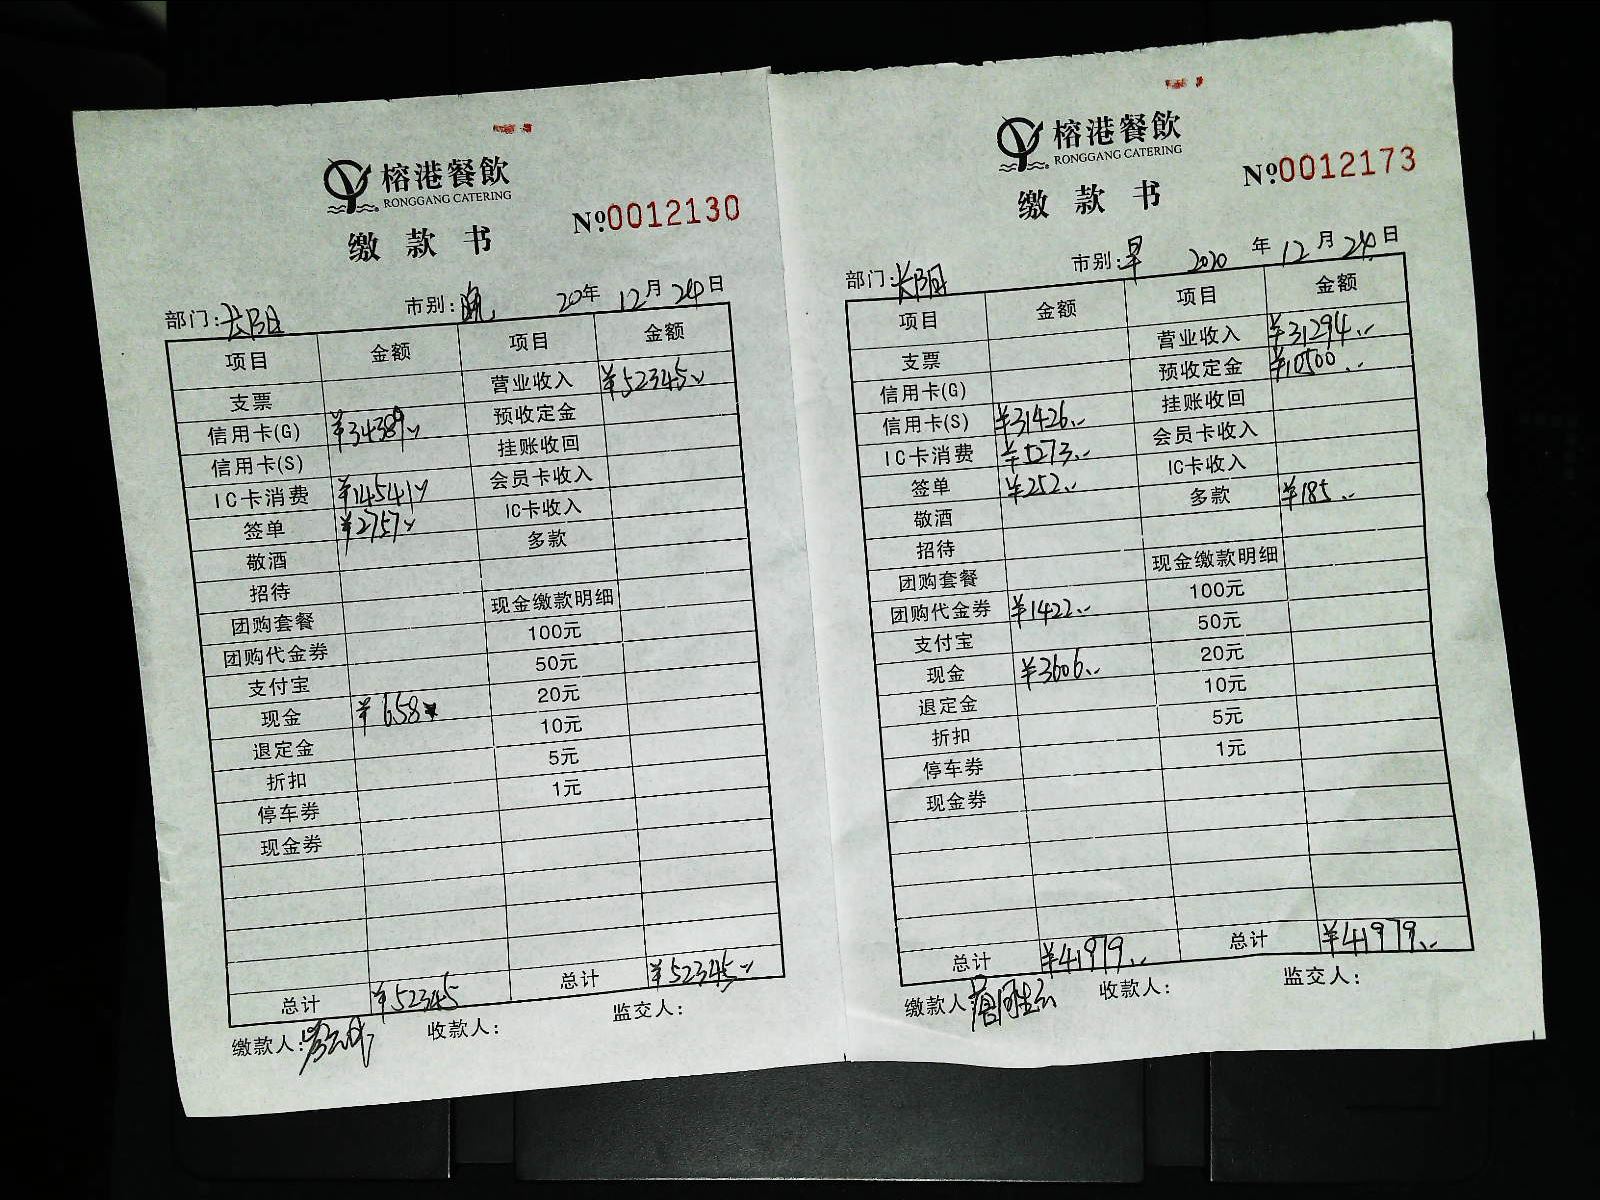 榕港餐飲
RONGGANG CATERING
缴款书
№0012130
部门:长阳 市别:晚 20年12月24日
项目 金额 项目 金额
支票 营业收入 ¥52345
信用卡(G) ¥34389 预收定金
信用卡(S) 挂账收回
IC卡消费 ¥14541 会员卡收入
签单 ¥2757 IC卡收入
敬酒 多款
招待
团购套餐 现金缴款明细
团购代金券 100元
支付宝 50元
现金 ¥658 20元
退定金 10元
折扣 5元
停车券 1元
现金券
总计 ¥52345 总计 ¥52345
缴款人: 收款人: 监交人:
榕港餐飲
RONGGANG CATERING
缴款书
№0012173
部门:长阳 市别:早 2020年12月24日
项目 金额 项目 金额
支票 营业收入 ¥31294
信用卡(G) 预收定金 ¥10500
信用卡(S) ¥31426 挂账收回
IC卡消费 ¥5273 会员卡收入
签单 ¥252 IC卡收入
敬酒 多款 ¥185
招待
团购套餐 现金缴款明细
团购代金券 ¥1422 100元
支付宝 50元
现金 ¥3606 20元
退定金 10元
折扣 5元
停车券 1元
现金券
总计 ¥41979 总计 ¥41979
缴款人 收款人: 监交人: